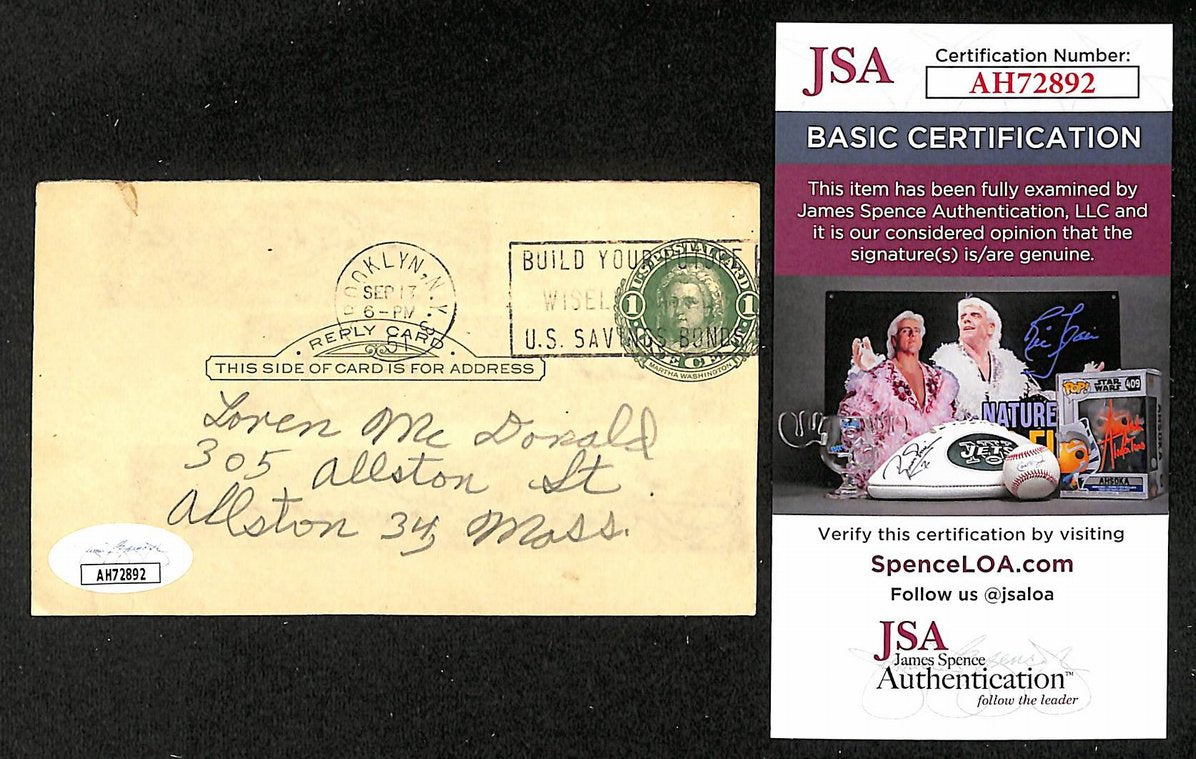 BROOKLYN, N.Y.
SEP 17
6-PM
51
BUILD YOUR
WISEL
U.S. SAVINGS BONDS
U.S. POSTAL CARD
1 1
MARTHA WASHINGTON
REPLY CARD
THIS SIDE OF CARD IS FOR ADDRESS
Loren Mc Donald
305 Allston St.
Allston 34, Mass.
AH72892
JSA
Certification Number:
AH72892
BASIC CERTIFICATION
This item has been fully examined by
James Spence Authentication, LLC and
it is our considered opinion that the
signature(s) is/are genuine.
Ric Flair
NATURE
JETS
POP!
STAR WARS
409
AHSOKA
Verify this certification by visiting
SpenceLOA.com
Follow us @jsaloa
JSA
James Spence
Authentication™
follow the leader